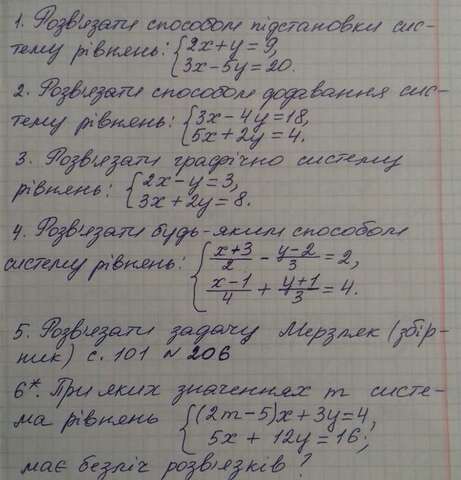 1. Розв'язати способом підстановки сис-
тему рівнянь: {2x+y=9,
3x-5y=20.
2. Розв'язати способом додавання сис-
тему рівнянь: {3x-4y=18,
5x+2y=4.
3. Розв'язати графічно систему
рівнянь: {2x-y=3,
3x+2y=8.
4. Розв'язати будь-яким способом
систему рівнянь: {(x+3)/2 - (y-2)/3 = 2,
(x-1)/4 + (y+1)/3 = 4.
5. Розв'язати задачу Мерзляк (збір-
ник) с. 101 № 206
6*. При яких значеннях m систе-
ма рівнянь {(2m-5)x+3y=4,
5x+12y=16;
має безліч розв'язків?